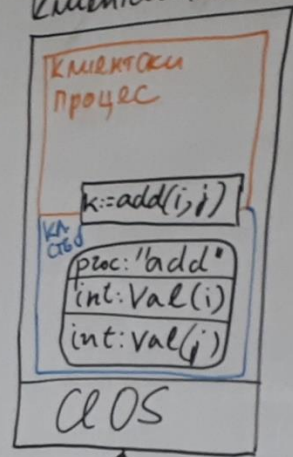 клиентски
процес
k:=add(i,j)
proc: "add"
int: Val(i)
int: Val(j)
OS